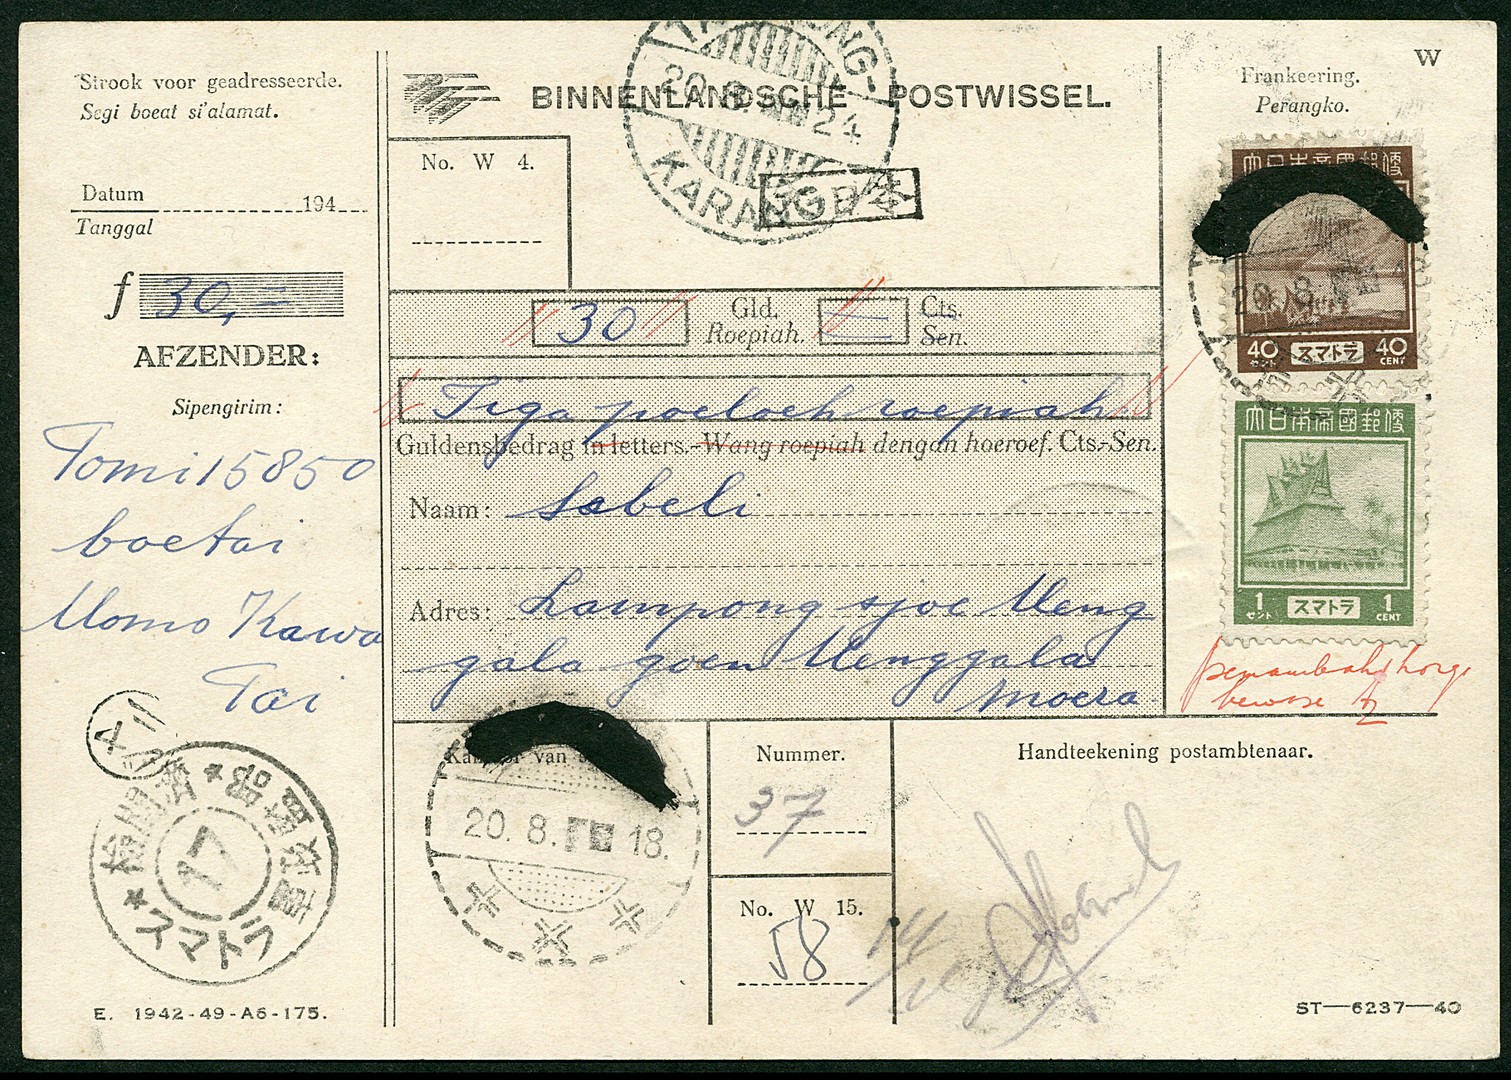 Strook voor geadresseerde.
Segi boeat si'alamat.
Datum
194
Tanggal
f 30,=
AFZENDER:
Sipengirim:
Tomi 15850
boetai
Momo Kawa
Tai
17
スマトラ
E. 1942-49-A6-175.
BINNENLANDSCHE POSTWISSEL.
20.8. 24
KARANG
No. W 4.
30
Gld.
Roepiah.
Cts.
Sen.
Tiga poeloeh roepiah
Guldensbedrag in letters.-Wang roepiah dengan hoeroef. Cts.-Sen.
Naam: Sabeli
Adres: Lampong sjoe Meng
gala goen Menggala
moera
Kantoor van
20. 8. 18.
Nummer.
37
No. W 15.
58
Handteekening postambtenaar.
ST—6237—40
W
Frankeering.
Perangko.
大日本帝國郵便
20.8.
40 スマトラ 40
セント CENT
大日本帝國郵便
1 スマトラ 1
セント CENT